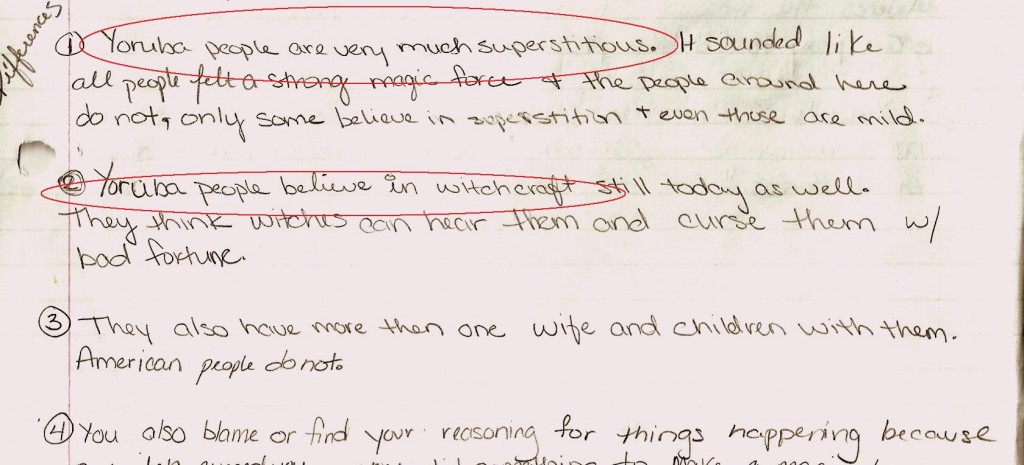 Differences
① Yoruba people are very much superstitious. It sounded like
all people felt a strong magic force & the people around here
do not, only some believe in superstition + even those are mild.
② Yoruba people believe in witchcraft still today as well.
They think witches can hear them and curse them w/
bad fortune.
③ They also have more then one wife and children with them.
American people do not.
④ You also blame or find your reasoning for things happening because